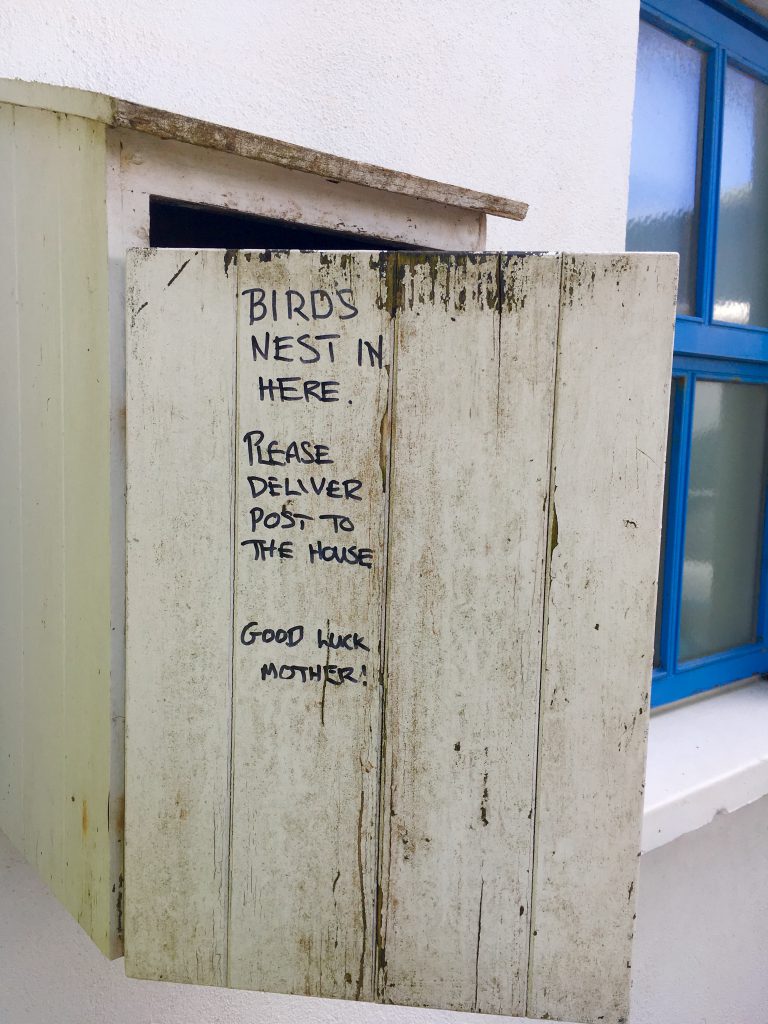 BIRDS
NEST IN
HERE.
PLEASE
DELIVER
POST TO
THE HOUSE
GOOD LUCK
MOTHER!